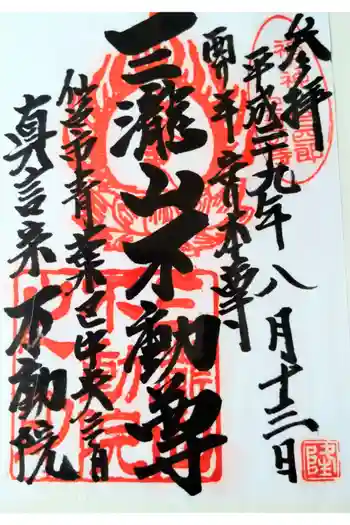 参拝
平成二十九年八月十三日
酉年守本尊
三瀧山不動尊
仙台市青葉区中央二丁目
真言宗 不動院